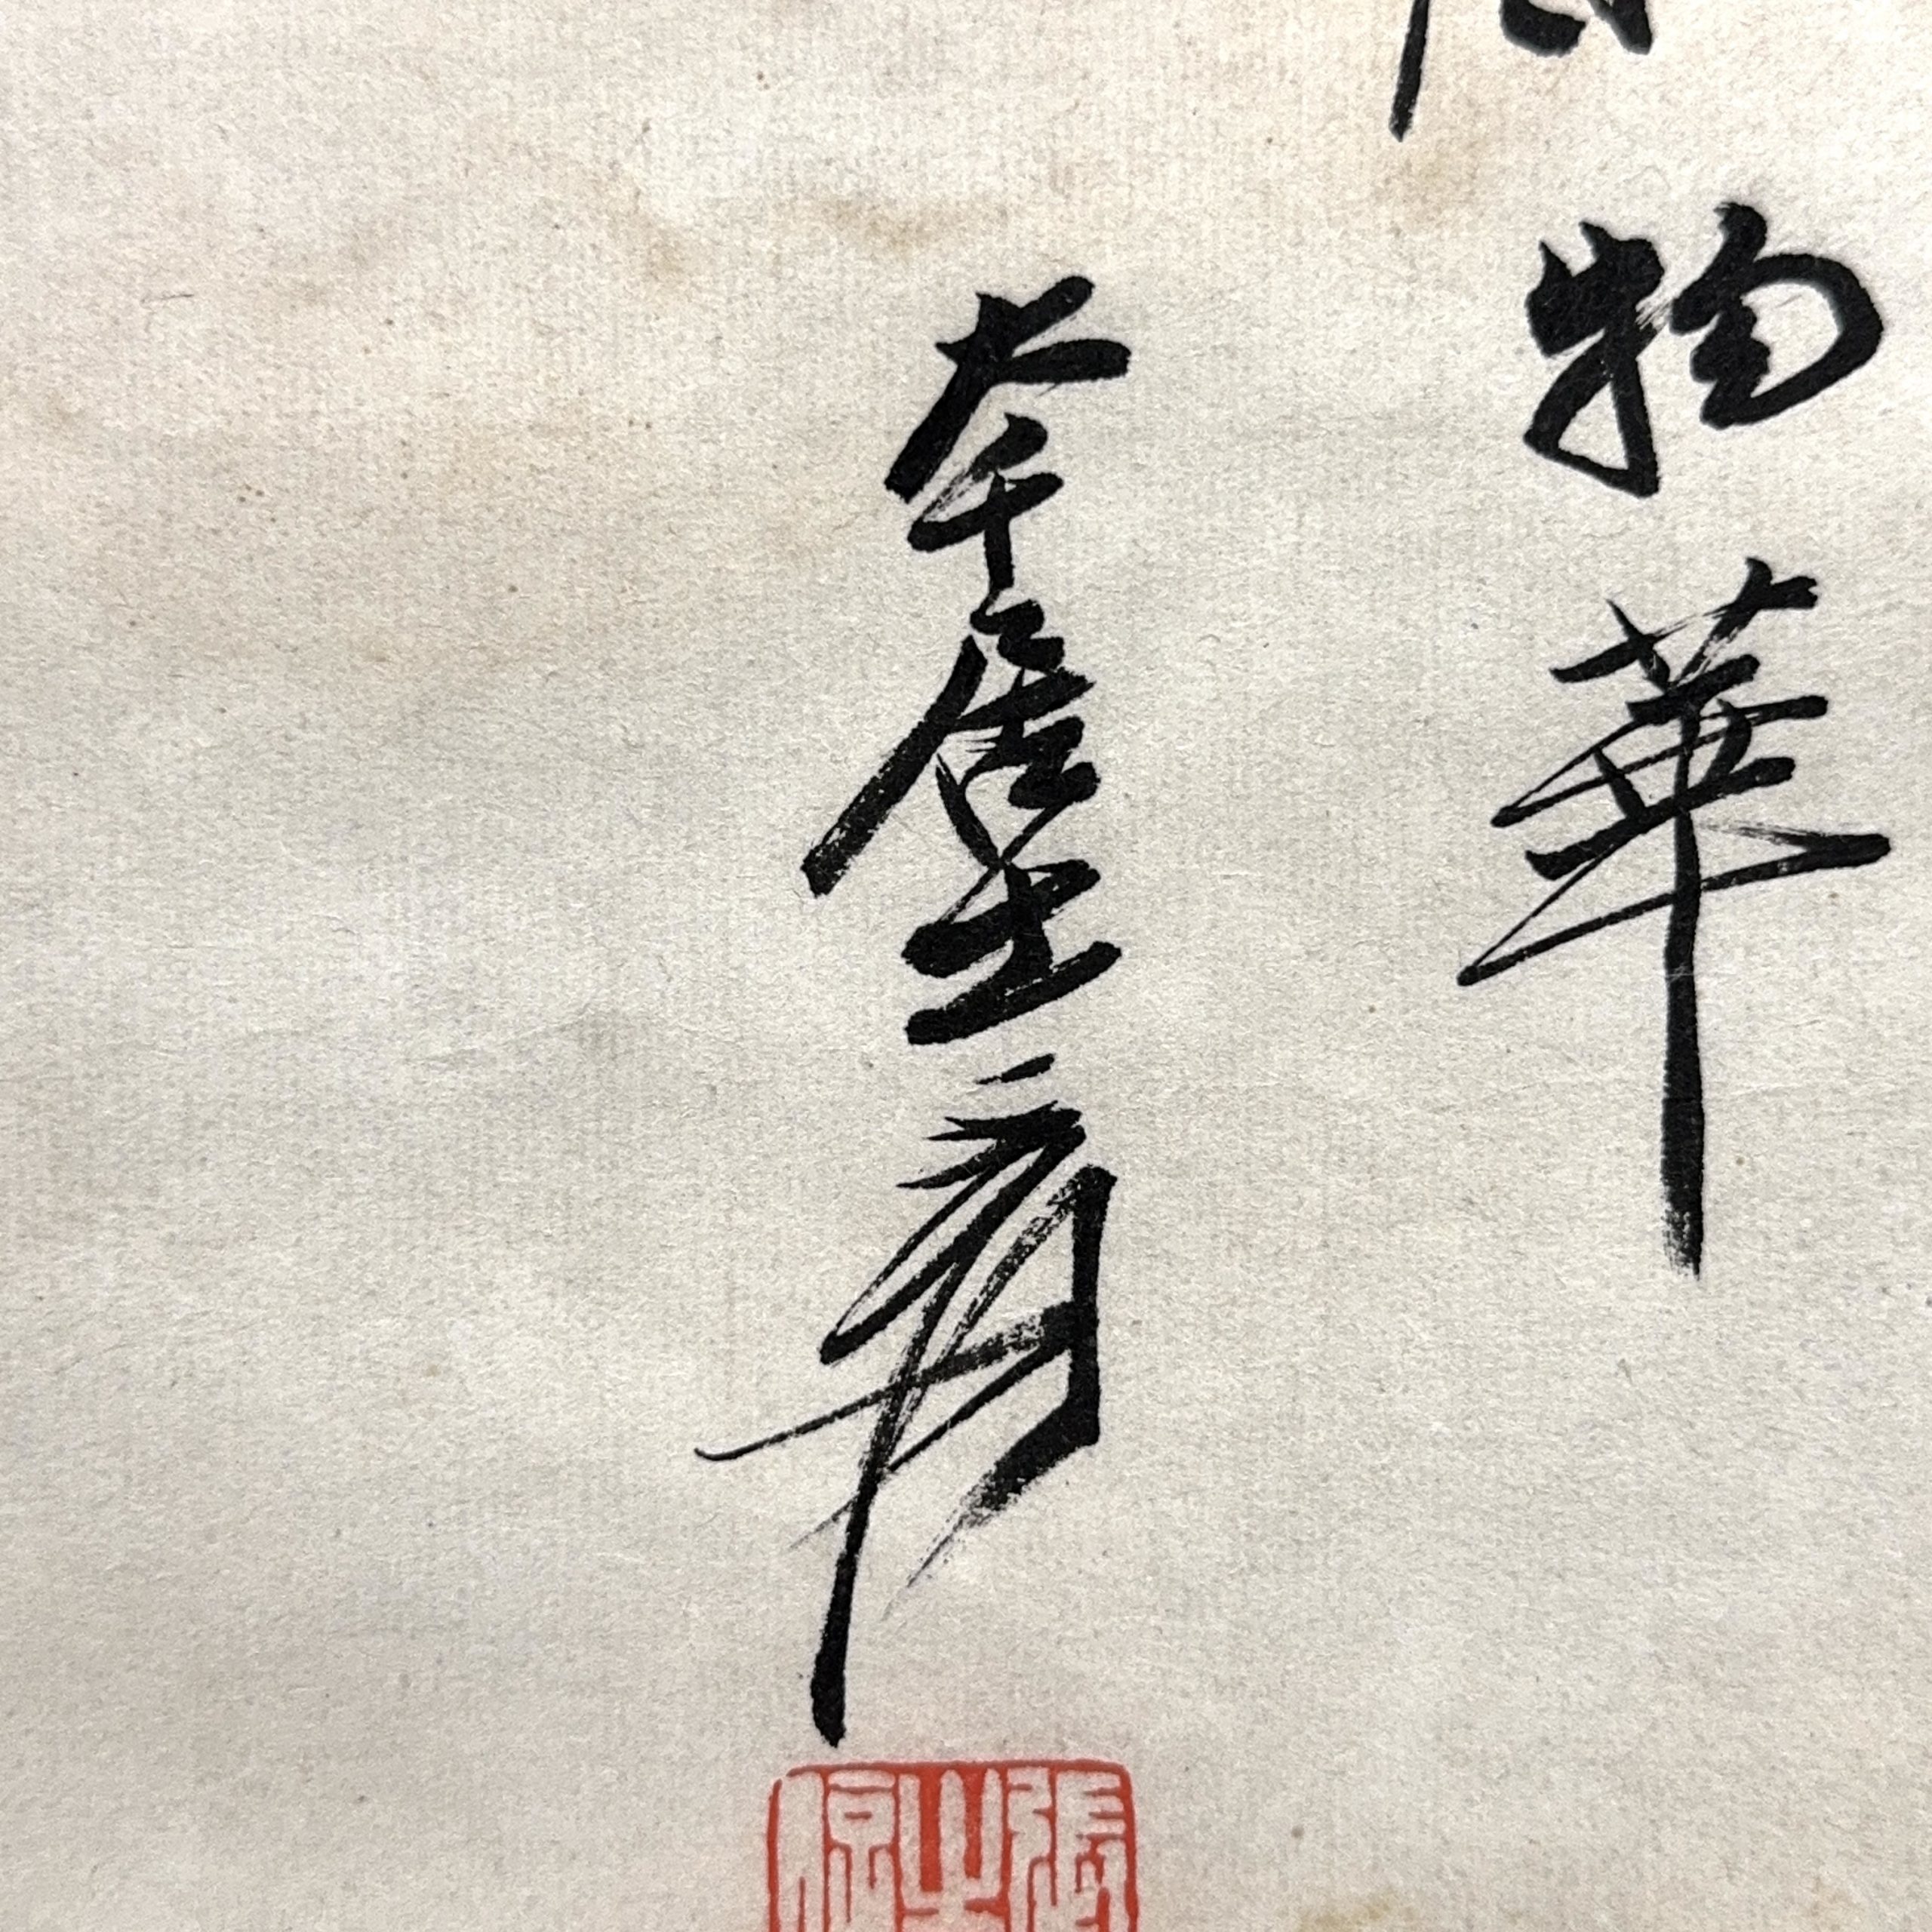 物華
大千居士爰
張